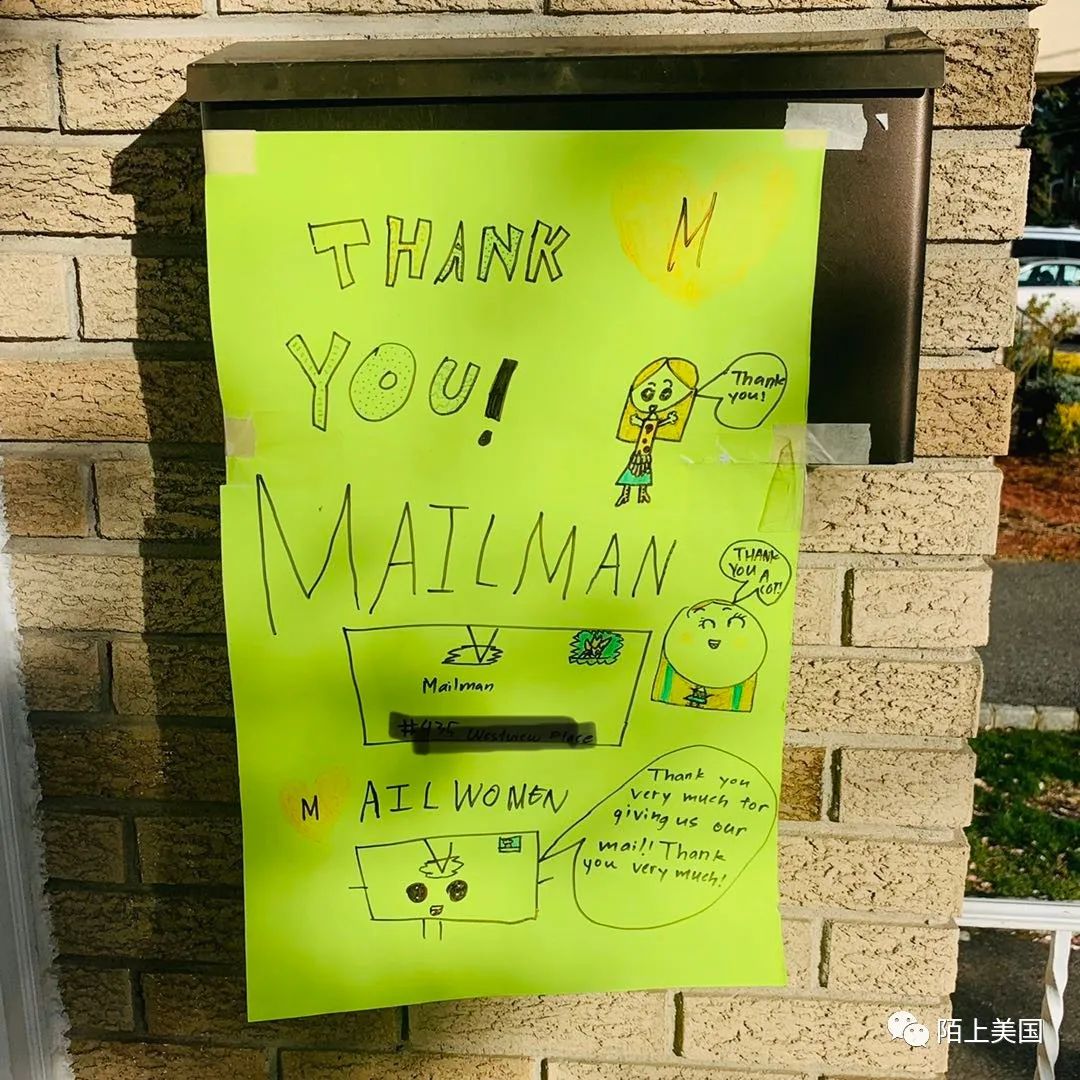 M
THANK
YOU!
Thank
you!
MAILMAN
THANK
YOU A
LOT!
Mailman
#435 Westview Place
MAILWOMEN
Thank you
very much for
giving us our
mail! Thank
you very much!
陌上美国